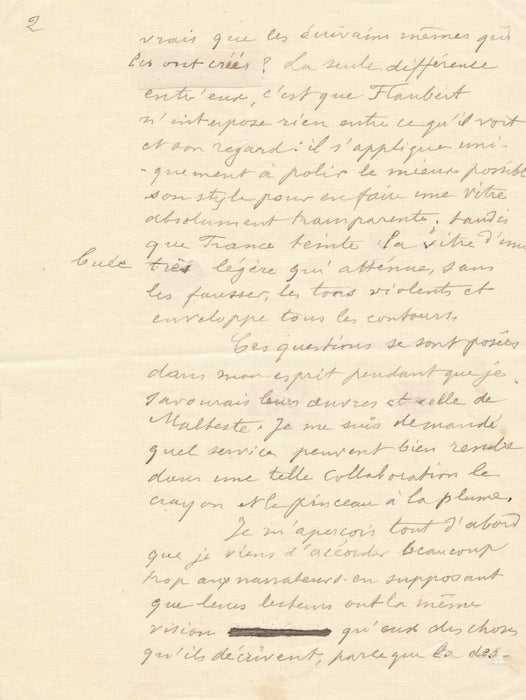 2
vrais que les écrivains mêmes qui
les ont créés ? La seule différence
entr'eux, c'est que Flaubert
n'interpose rien entre ce qu'il voit
et son regard : il s'applique uni-
-quement à polir le mieux possible
son style pour en faire une vitre
absolument transparente, tandis
que France teinte la vitre d'une
buée très légère qui atténue, sans
les fausser, les tons violents et
enveloppe tous les contours.
Ces questions se sont posées
dans mon esprit pendant que je
savourais leurs œuvres et celle de
Malteste. Je me suis demandé
quel service peuvent bien rendre
dans une telle collaboration le
crayon et le pinceau à la plume.
Je m'aperçois tout d'abord
que je viens d'accorder beaucoup
trop aux narrateurs en supposant
que leurs lecteurs ont la même
vision qu'eux des choses
qu'ils décrivent, parce que la des-